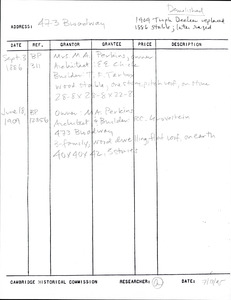 Demolished
ADDRESS: 473 Broadway
1909 Triple Decker replaced
1886 stable, later razed
DATE REF. GRANTOR GRANTEE PRICE DESCRIPTION
Sept. 3 BP Mrs M.A. Perkins, owner
1886 311 Architect
Builder
wood stable, one story, pitch roof, on stone
28-8 x 28-8 x 22-8
June 18, BP Owner: M.A. Perkins
1909 Architect + Builder
473 Broadway
3-family, wood dwelling, flat roof on earth
40 x 40 x 42. 3 stories
CAMBRIDGE HISTORICAL COMMISSION RESEARCHER: DATE: